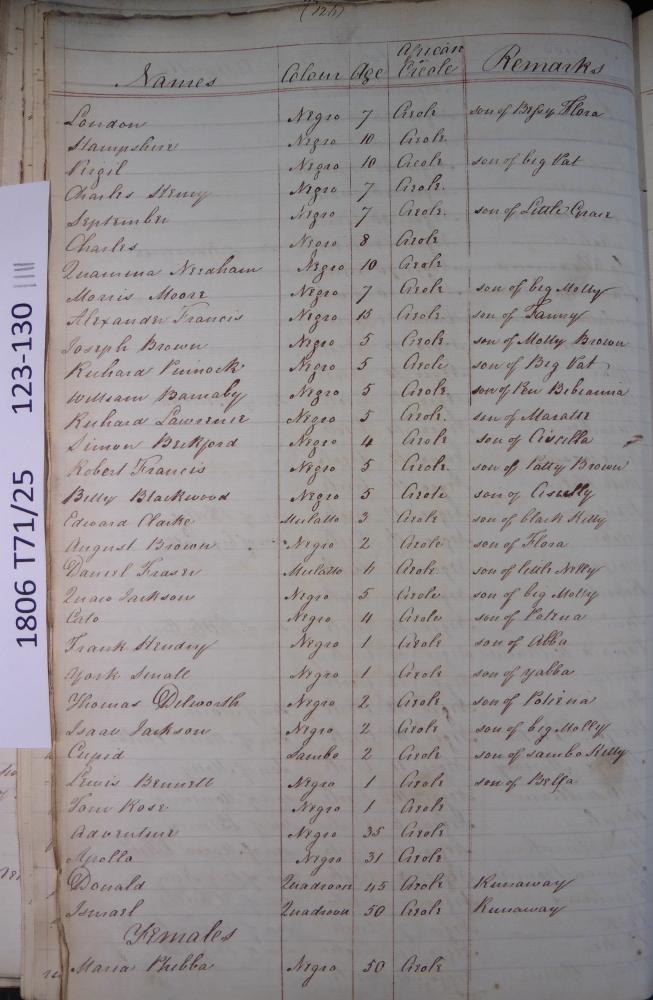 (124)
Names Colour Age African Creole Remarks
London Negro 7 Creole son of Bessy Flora
Hampshire Negro 10 Creole
Virgil Negro 10 Creole son of big Pat
Charles Henry Negro 7 Creole
September Negro 7 Creole son of Little Grace
Charles Negro 8 Creole
Quamina Needham Negro 10 Creole
Morris Moore Negro 7 Creole son of big Molly
Alexander Francis Negro 15 Creole son of Fanny
Joseph Brown Negro 5 Creole son of Molly Brown
Richard Pinnock Negro 5 Creole son of Big Pat
William Barnaby Negro 5 Creole son of Bibianna
Richard Lawrence Negro 5 Creole son of
Simon Beckford Negro 4 Creole son of Ciscilla
Robert Francis Negro 5 Creole son of Patty Brown
Billy Blackwood Negro 5 Creole son of
Edward Clarke Mulatto 3 Creole son of black Kitty
August Brown Negro 2 Creole son of Flora
Daniel Fraser Mulatto 4 Creole son of little Nelly
Quaco Jackson Negro 5 Creole son of big Molly
Cato Negro 4 Creole son of
Frank Hendry Negro 1 Creole son of Abba
York Small Negro 1 Creole son of Yabba
Thomas Dilworth Negro 2 Creole son of
Isaac Jackson Negro 2 Creole son of big Molly
Cupid Sambo 2 Creole son of sambo Kitty
Lewis Bennett Negro 1 Creole son of
Tom Rose Negro 1 Creole
Adventure Negro 35 Creole
Apollo Negro 31 Creole
Donald Quadroon 45 Creole Runaway
Ismael Quadroon 50 Creole Runaway
Females
Maria Phibba Negro 50 Creole
1806 T71/25 123-130